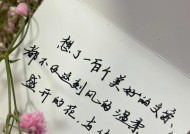 想了一百个美好的
都不及这刻风的温柔
盛开的花，与